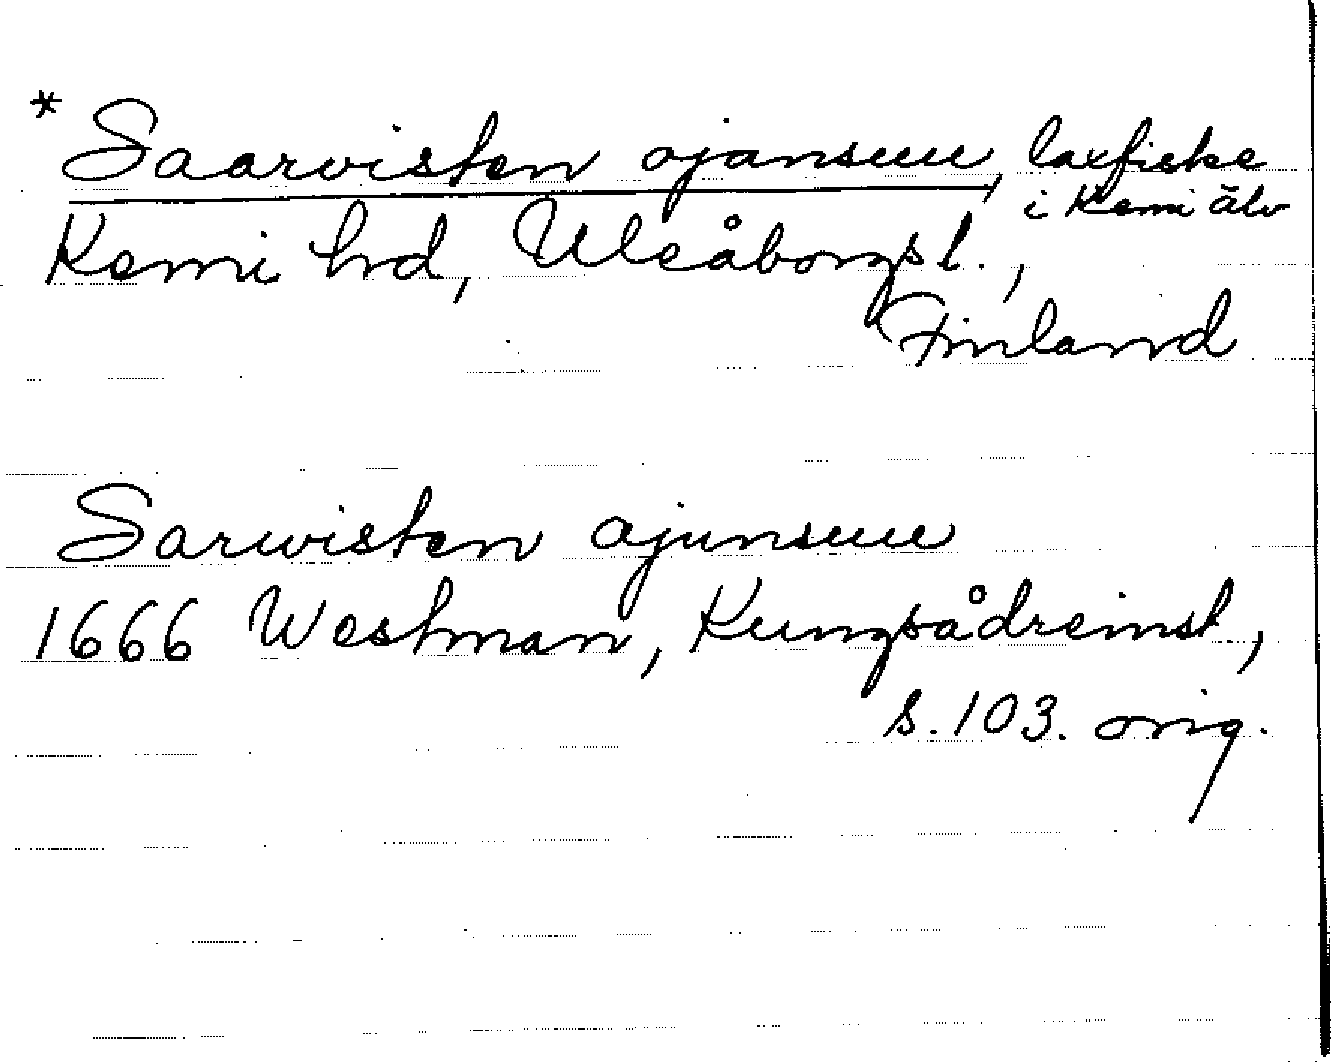 * Saarvisten ojansuu, laxfiske
i Kemi älv
Kemi hrd, Uleåborgsl.,
Finland
Sarwisten ajunsuu
1666 Westman, Kungsådreinst,
s. 103. orig.